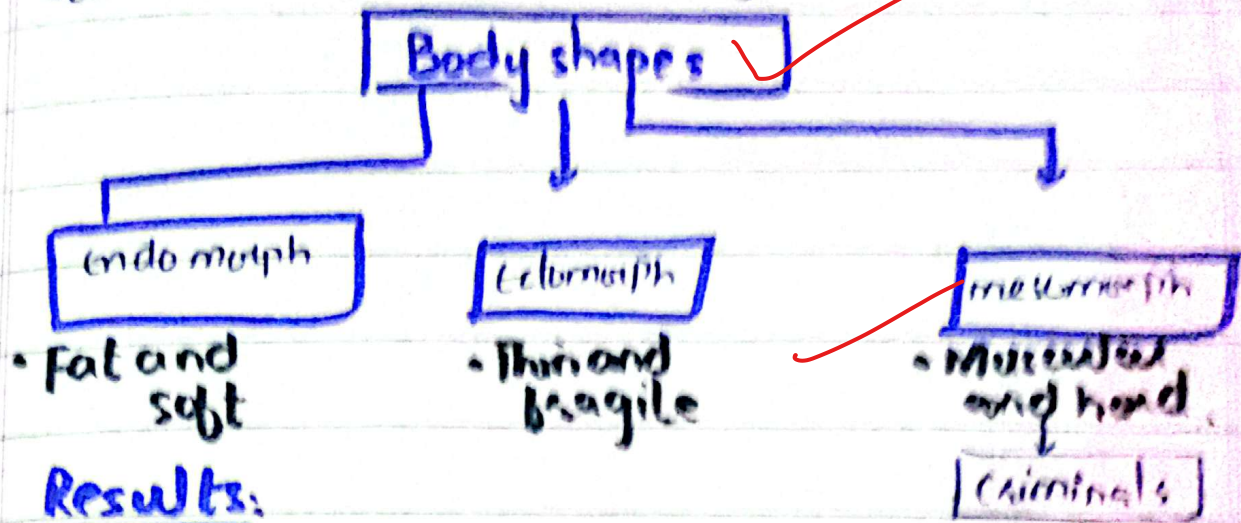 Body shapes
endo morph
Ectomorph
mesomorph
• Fat and
soft
• Thin and
fragile
• Muscular
and hard
Criminals
Results: